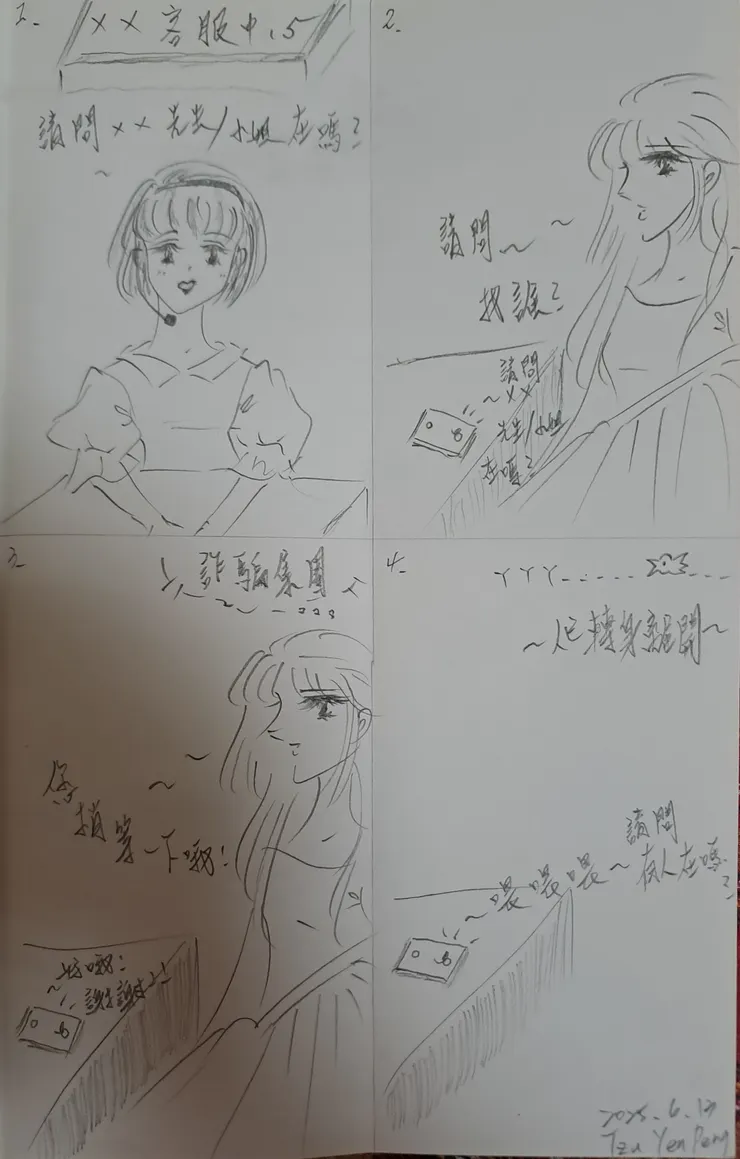 1.
×× 客服中心
請問 ×× 先生/小姐 在嗎?
~
2.
請問~ ~
找誰?
請問
~××
先生/小姐
在嗎?
3.
詐騙集團
~ ~
您
稍等一下哦!
~好哦!
謝謝!!
4.
丫丫丫......
~人已轉身離開~
請問
~喂喂喂~有人在嗎?
2025.6.13
Tzu Yen Peng